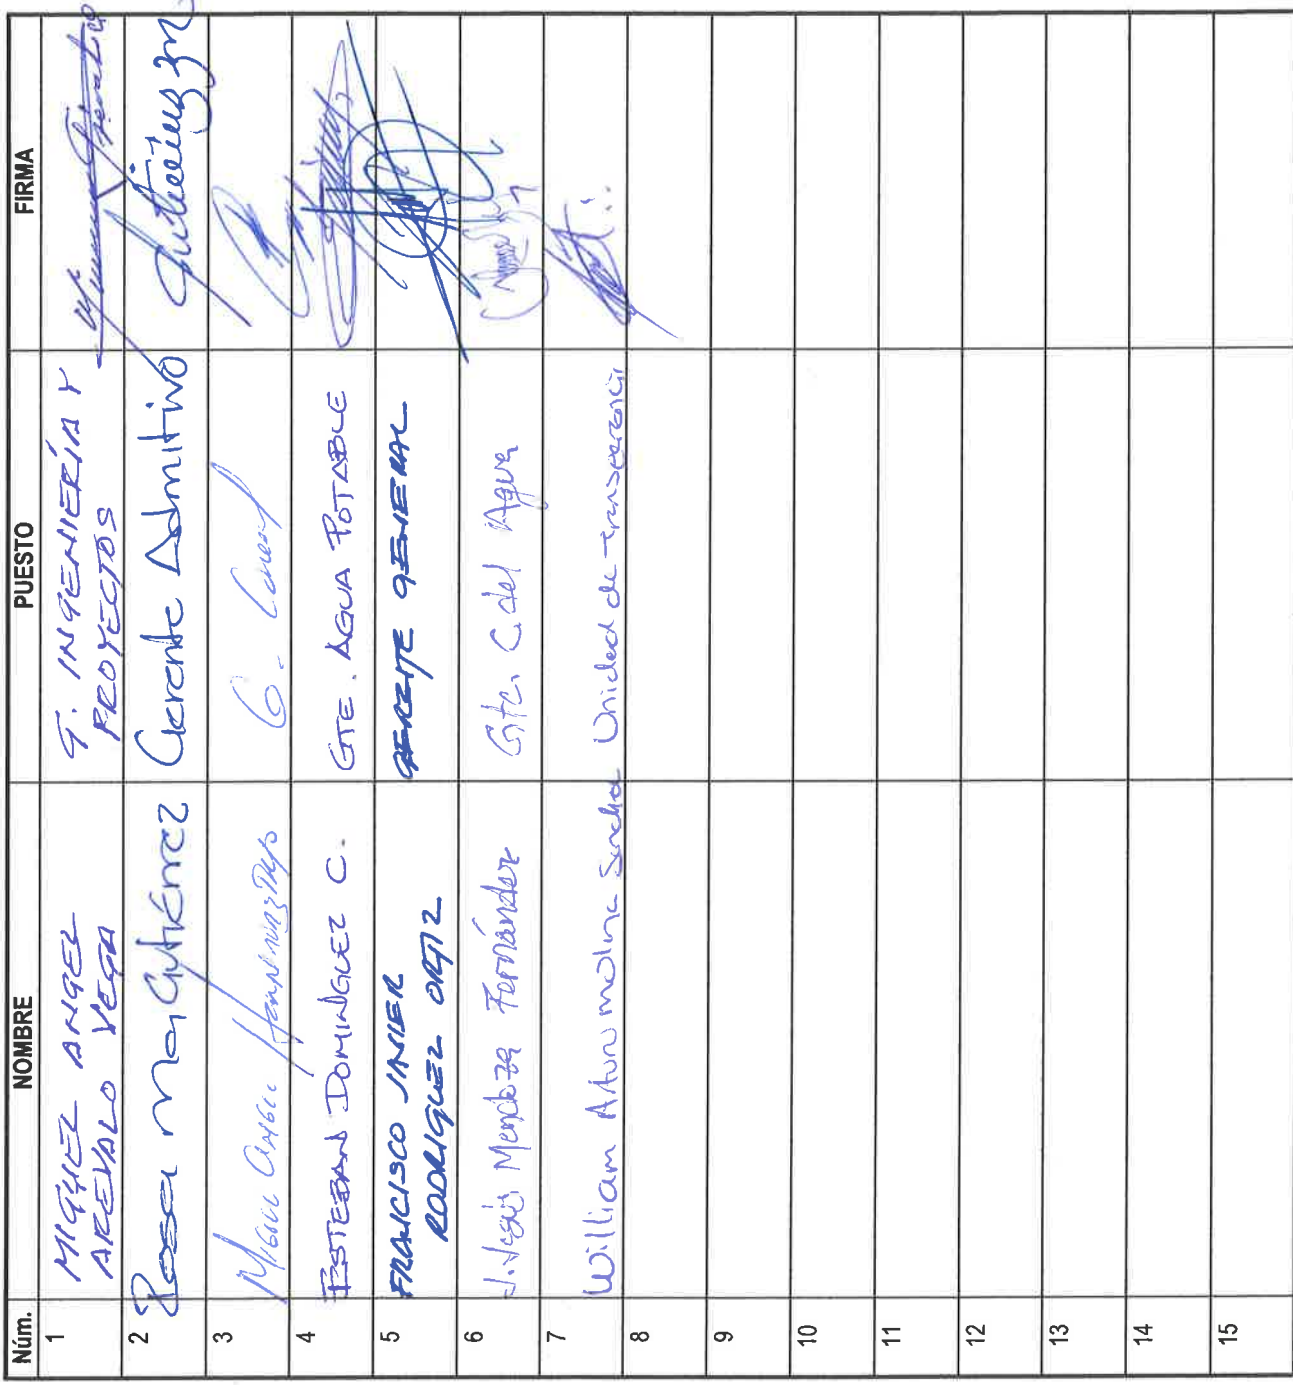 Núm. NOMBRE PUESTO FIRMA
1 MIGUEL ANGEL AREVALO VEGA G. INGENIERÍA Y PROYECTOS
2 Rosa Ma Gutiérrez Gerente Admitivo Gutiérrez
3 Miguel Angel G.
4 ESTEBAN DOMINGUEZ C. GTE. AGUA POTABLE
5 FRANCISCO JAVIER RODRIGUEZ ORTIZ GERENTE GENERAL
6 J. Jesús Mendoza Fernández Gte. C. del Agua
7 William Arturo molina Sanchez Unidad de transparencia
8
9
10
11
12
13
14
15